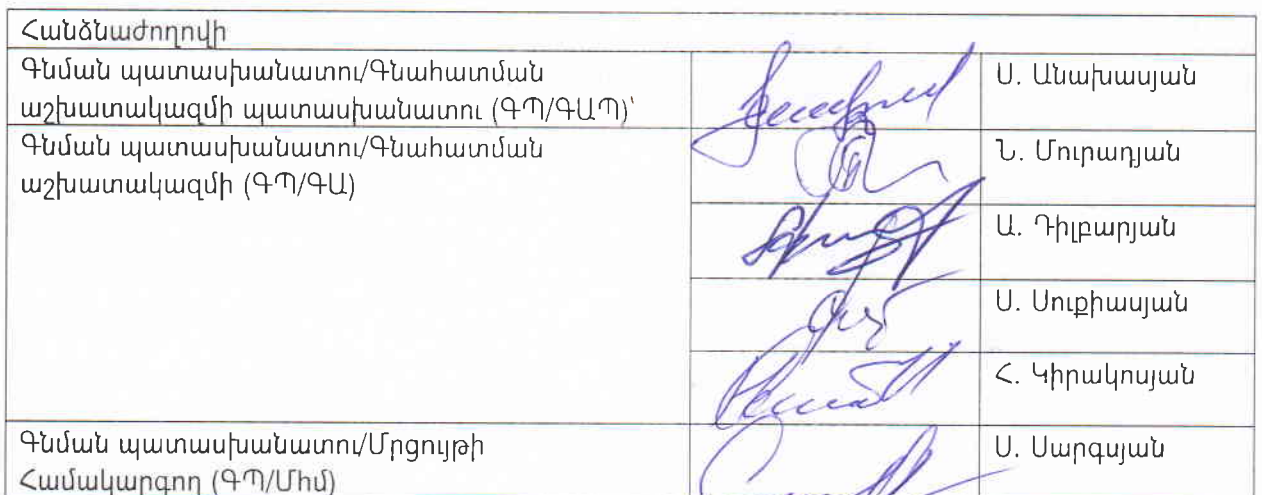 Հանձնաժողովի
Գնման պատասխանատու/Գնահատման
աշխատակազմի պատասխանատու (ԳՊ/ԳԱՊ)՝
Ս. Անախասյան
Գնման պատասխանատու/Գնահատման
աշխատակազմի (ԳՊ/ԳԱ)
Ն. Մուրադյան
Ա. Դիլբարյան
Ս. Սուքիասյան
Հ. Կիրակոսյան
Գնման պատասխանատու/Մրցույթի
Համակարգող (ԳՊ/Միմ)
Ս. Սարգսյան